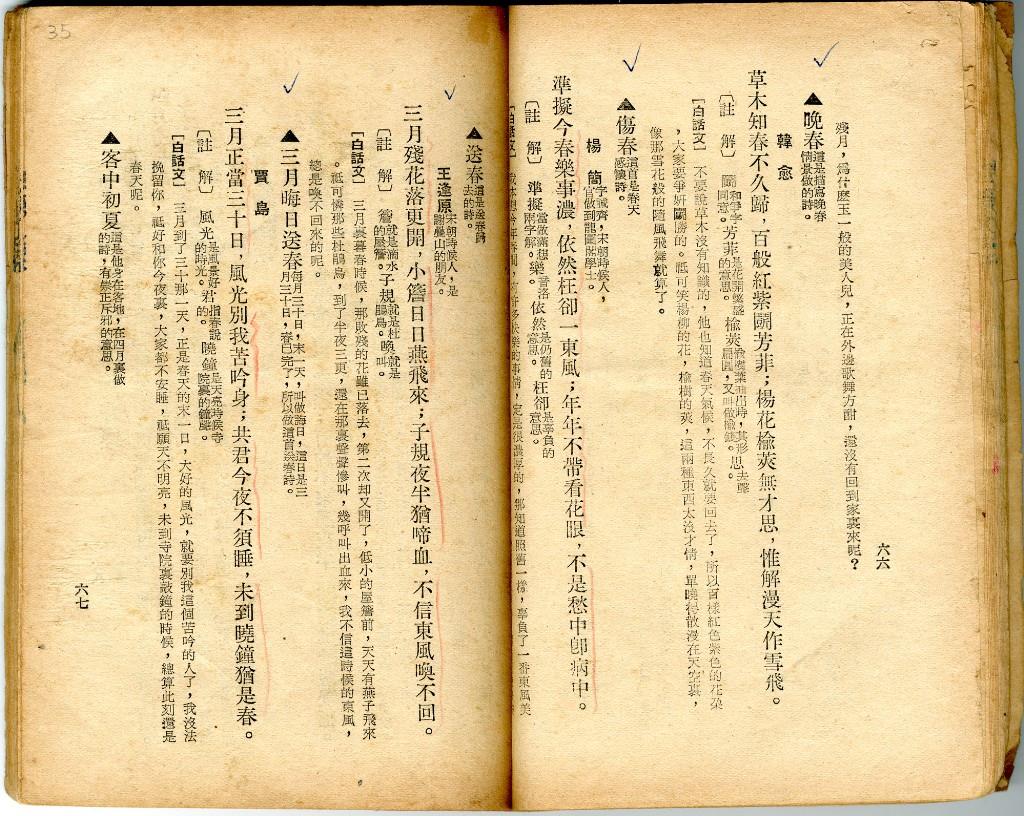 六六
殘月，爲什麼玉一般的美人兒，正在外邊歌舞方酣，還沒有回到家裏來呢？
▲晚春這是描寫晚春情景做的詩。
韓愈
草木知春不久歸，百般紅紫鬬芳菲；楊花楡莢無才思，惟解漫天作雪飛。
〔註　解〕鬬和爭字同意。芳菲是花開繁盛的意思。楡莢
〔白話文〕不要說草木沒有知識的，他也知道春天氣候，不長久就要回去了，所以百樣紅色紫色的花朶
，大家要爭妍鬬勝的。祇可笑楊柳的花，楡樹的莢，這兩種東西太沒才情，單曉得散漫在天空裏，
像那雪花般的隨風飛舞就算了。
▲傷春這首是春天感懷詩。
楊簡字誠齊，宋朝時候人，官做到龍圖閣學士。
準擬今春樂事濃，依然枉卻一東風；年年不帶看花眼，不是愁中卽病中。
〔註　解〕準擬當做滿想兩字解。樂音洛依然是仍舊的意思。枉卻是辜負的意思。
〔白話文〕
35
▲送春這是送春歸去的詩。
王逢原宋朝時候人，是謝疊山的朋友。
三月殘花落更開，小簷日日燕飛來；子規夜半猶啼血，不信東風喚不回。
〔註　解〕簷就是滴水的屋簷。子規就是杜鵑鳥。喚就是叫。
〔白話文〕三月裏暮春時候，那敗殘的花雖已落去，第二次却又開了，低小的屋簷前，天天有燕子飛來
。祇可憐那些杜鵑鳥，到了半夜三更，還在那裏聲聲慘叫，幾呼叫出血來，我不信這時候的東風，
總是喚不回來的呢。
▲三月晦日送春每月三十日，末一天，叫做晦日，這日是三月三十日，春已完了，所以做這首送春詩。
賈島
三月正當三十日，風光別我苦吟身；共君今夜不須睡，未到曉鐘猶是春。
〔註　解〕風光是風景好的時光。君指春說的。曉鐘是天亮時候寺院裏的鐘聲。
〔白話文〕三月到了三十那一天，正是春天的末一日，大好的風光，就要別我這個苦吟的人了，我沒法
挽留你，祇好和你今夜裏，大家都不安睡，祇願天不明亮，未到寺院裏敲鐘的時候，總算此刻還是
春天呢。
▲客中初夏這是他身在客地，在四月裏做的詩，有崇正斥邪的意思。
六七